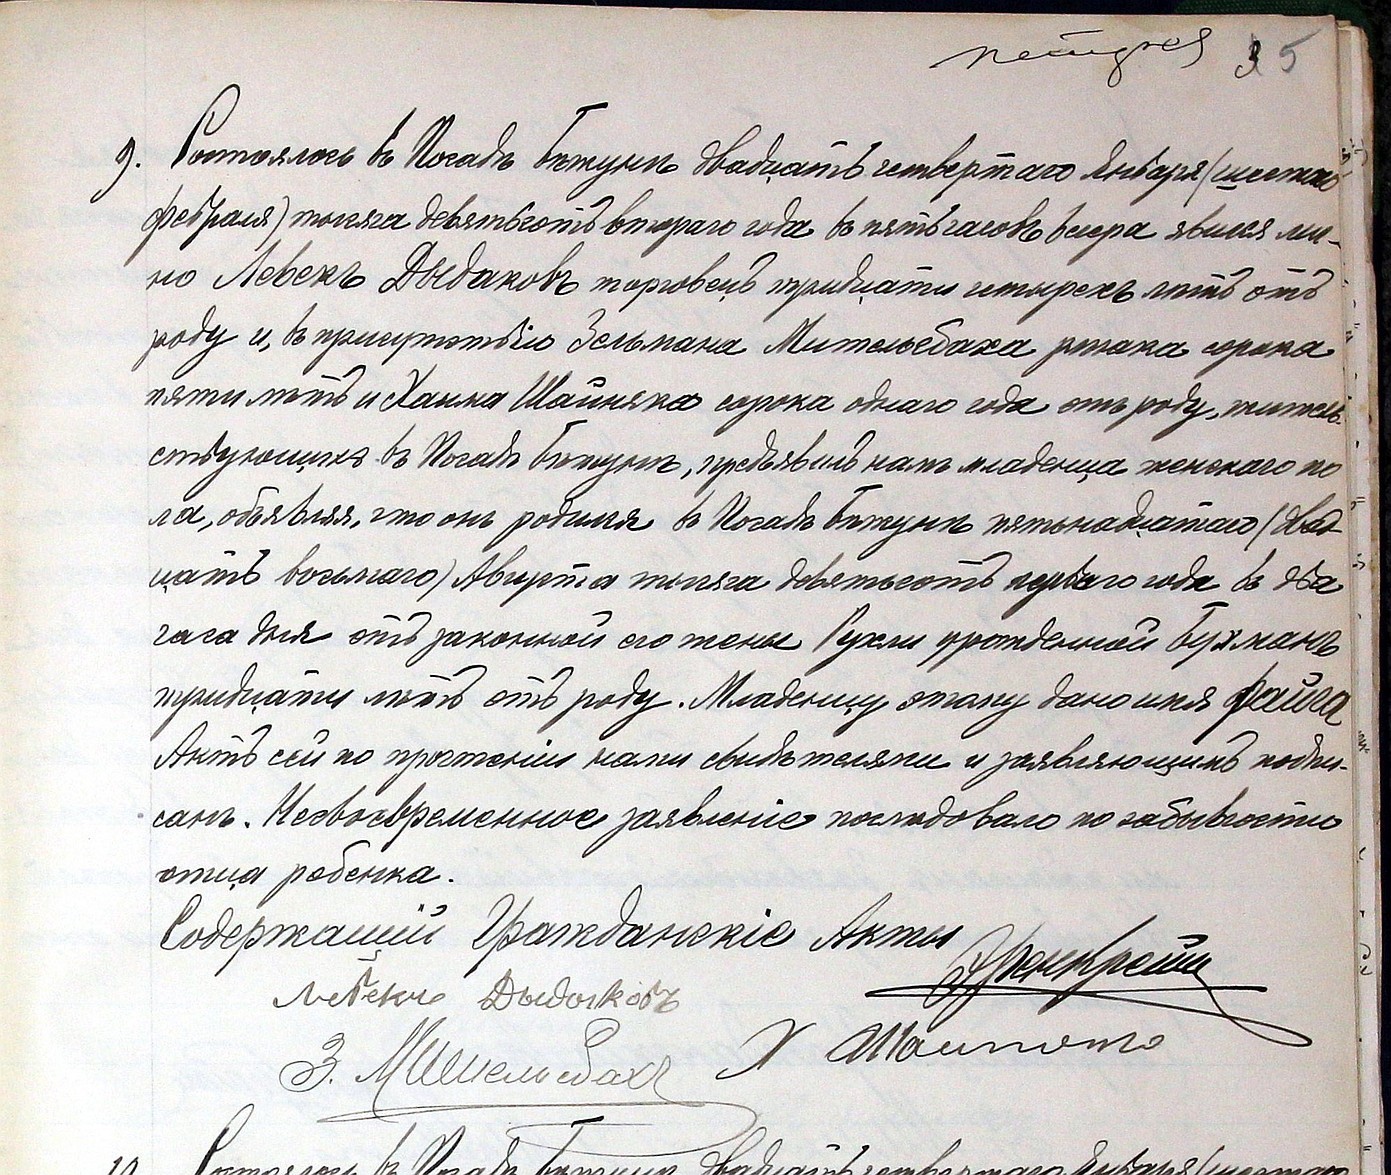 35
9. Состоялось въ Посадѣ Бежунь двадцать четвертаго Января (шестаго
февраля) тысяча девятьсотъ втораго года въ пять часовъ вечера явился лич-
но Левекъ Дыдаковъ торговецъ тридцати четырехъ лѣтъ отъ
роду и, въ присутствіи Зельмана Мительсбаха рѣзака сорока
пяти лѣтъ и Хаима Шайняка сорока одного года отъ роду, житель-
ствующихъ въ Посадѣ Бежунь, предъявилъ намъ младенца женскаго по
ла, объявляя, что онъ родился въ Посадѣ Бежунь пятьнадцатаго (двад
цать восьмаго) Августа тысяча девятьсотъ перваго года въ два
часа дня отъ законной его жены Рухли урожденной Бухманъ
тридцати лѣтъ отъ роду. Младенцу этому дано имя Файга
Актъ сей по прочтеніи нами свидѣтелями и заявляющимъ подпи-
санъ. Несвоевременное заявленіе послѣдовало по забывчости
отца ребенка.
Содержащій Гражданскіе Акты
Левекъ Дыдаковъ
З. Мительсбахъ Х
10. Состоялось въ Посадѣ Бежунь двадцать четвертаго Января (шестаго